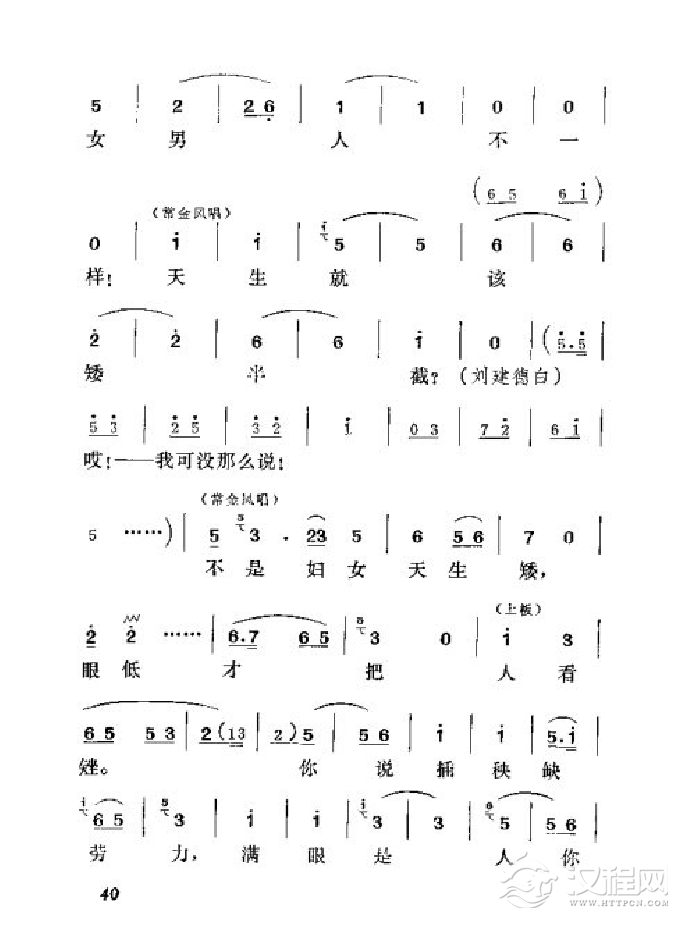 5 | 2 | 26 | 1 | 1 | 0 | 0 |
女 男 人 不 一
(65 6i)
(常金凤唱)
0 | i | i | 5 | 5 | 6 | 6 |
样! 天 生 就 该
2 | 2 | 6 | 6 | i | 0 | (5.5
矮 半 截? (刘建德白)
53 | 25 | 32 | i | 03 | 72 | 6i |
哎!——我可没那么说!
(常金凤唱)
5 ……) | 5 3 . 23 5 | 6 56 | 7 0 |
不是 妇女天生矮,
(上板)
2 2 …… 6.7 65 | 3 0 | i 3 |
眼低 才 把 人看
65 53 | 2(13 | 2)5 | 56 | i | i | 5.i |
矬。 你 说 插 秧 缺
65 | 3 | i | i | 3 | 3 | 5 | 56 |
劳 力, 满 眼 是 人 你
40
汉程网
WWW.HTTPCN.COM